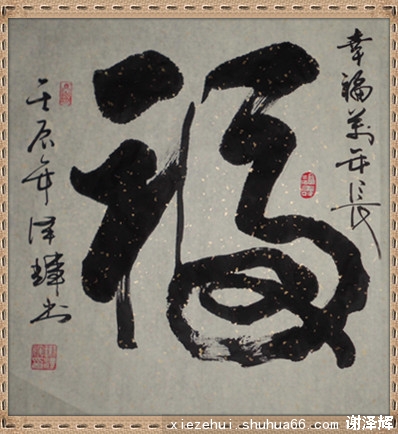 幸福萬年長
福
壬辰年泽輝书
xiezehui.shuhua66.com 谢泽辉